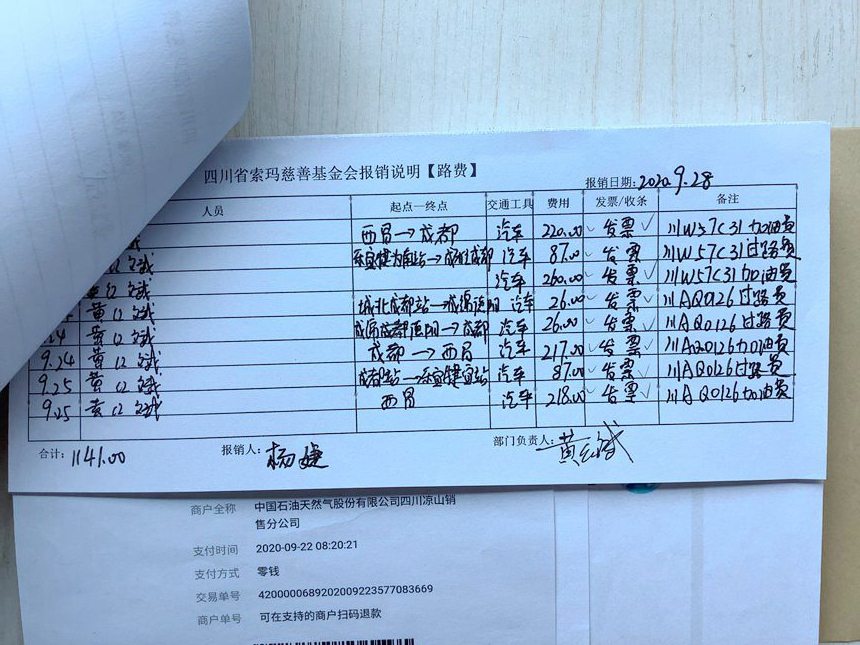 四川省索玛慈善基金会报销说明【路费】
报销日期: 2020.9.28
人员 起点—终点 交通工具 费用 发票/收条 备注
西昌→成都 汽车 220.00 发票 川W57C31加油费
汽车 87.00 发票 川W57C31过路费
黄红斌 汽车 260.00 发票 川W57C31加油费
黄红斌 城北成都站→ 汽车 26.00 发票 川AQ0126过路费
黄红斌 →成都 汽车 26.00 发票 川AQ0126过路费
9.24 黄红斌 成都→西昌 汽车 217.00 发票 川AQ0126加油费
9.25 黄红斌 汽车 87.00 发票 川AQ0126过路费
9.25 黄红斌 西昌 汽车 218.00 发票 川AQ0126加油费
合计: 1141.00 报销人: 杨婕 部门负责人: 黄红斌
商户全称 中国石油天然气股份有限公司四川凉山销
售分公司
支付时间 2020-09-22 08:20:21
支付方式 零钱
交易单号 4200000689202009223577083669
商户单号 可在支持的商户扫码退款